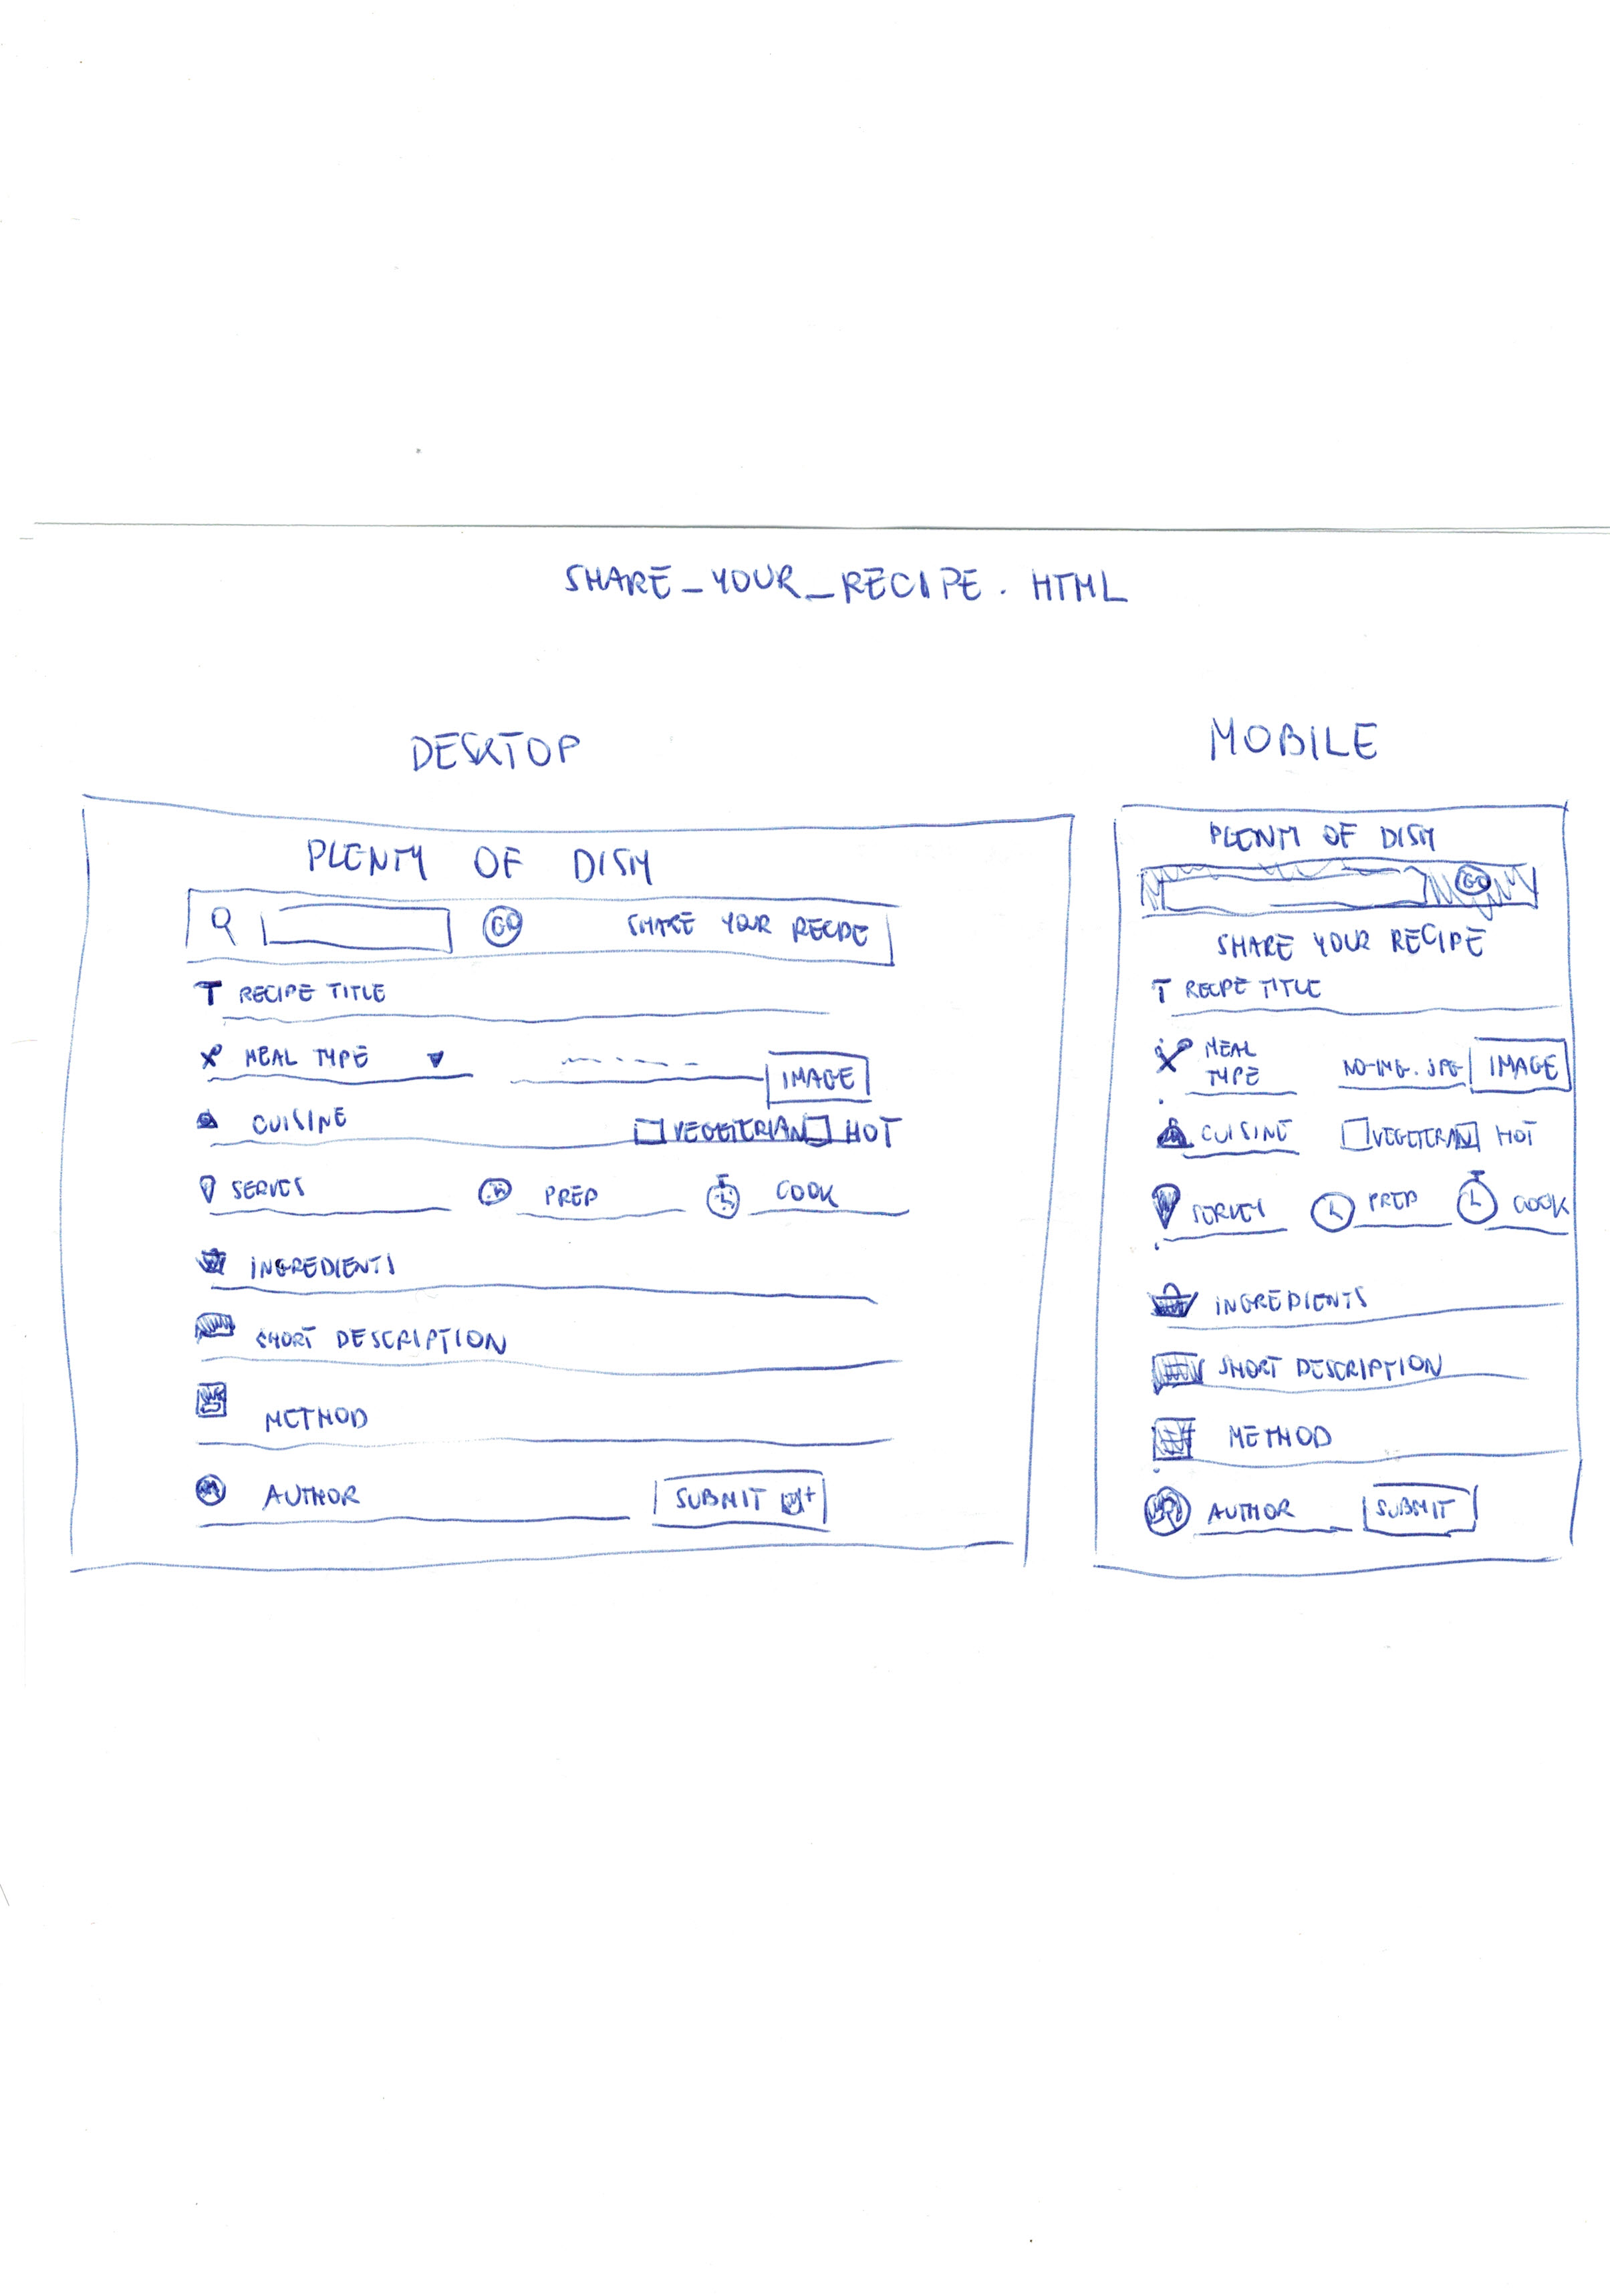 SHARE_YOUR_RECIPE.HTML
DESKTOP
PLENTY OF DISH
GO SHARE YOUR RECIPE
T RECIPE TITLE
MEAL TYPE
IMAGE
CUISINE VEGETERIAN HOT
SERVES PREP COOK
INGREDIENTS
SHORT DESCRIPTION
METHOD
AUTHOR SUBMIT +
MOBILE
PLENTY OF DISH
GO
SHARE YOUR RECIPE
T RECIPE TITLE
MEAL
TYPE NO-IMG.JPG IMAGE
CUISINE VEGETERIAN HOT
SERVES PREP COOK
INGREDIENTS
SHORT DESCRIPTION
METHOD
AUTHOR SUBMIT